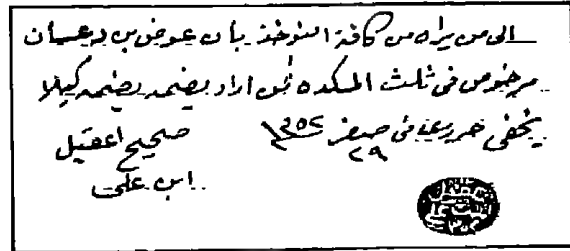 الى من يراه من كافة النوخذ بأن عوض بن دعسان
مرخوص في ثلث السكده فمن اراد يضمه يضمه كيلا
يخفى حرر في صفر ٢٩ ١٣٥٢
صحيح عقيل
ابن علي